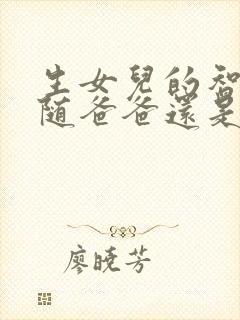 生女兒的智
随爸爸還是
廖曉芳